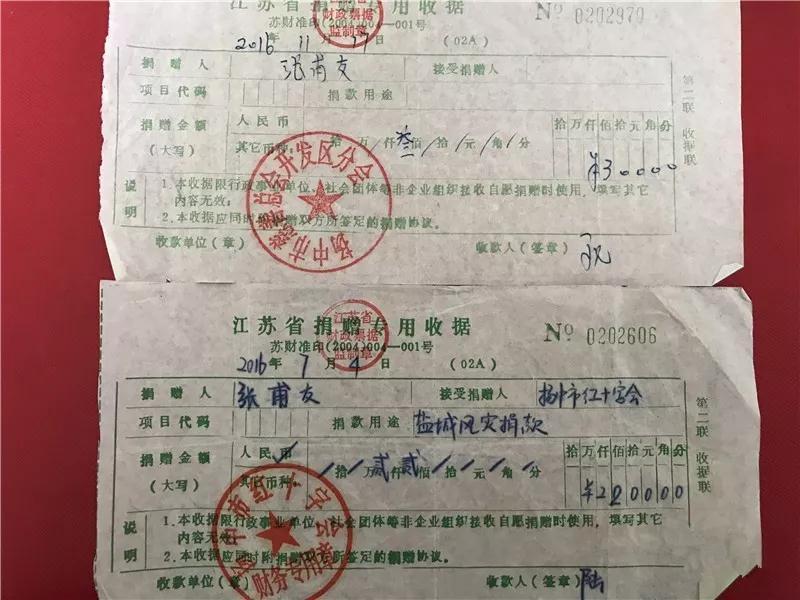 江苏省捐赠专用收据
苏财准印(2004)004—001号
№ 0202970
江苏省
财政票据
监制章
2016 年 11 月 17 日 (02A)
捐赠人 张甫友 接受捐赠人
项目代码 捐款用途
捐赠金额
(大写)
人民币
其它币种:
拾万仟叁佰拾元角分
拾万仟佰拾元角分
¥30000
说明
1.本收据限行政事业单位、社会团体等非企业组织接收自愿捐赠时使用,填写其它
内容无效;
2.本收据应同时附捐赠双方所签定的捐赠协议。
收款单位(章) 收款人(签章)
扬中市慈善总会开发区分会
第二联 收据联
江苏省捐赠专用收据
苏财准印(2004)004—001号
№ 0202606
江苏省
财政票据
监制章
2016 年 7 月 4 日 (02A)
捐赠人 张甫友 接受捐赠人 扬中市红十字会
项目代码 捐款用途 盐城风灾捐款
捐赠金额
(大写)
人民币
其它币种:
拾万贰仟贰佰拾元角分
拾万仟佰拾元角分
¥220000
说明
1.本收据限行政事业单位、社会团体等非企业组织接收自愿捐赠时使用,填写其它
内容无效;
2.本收据应同时附捐赠双方所签定的捐赠协议。
收款单位(章) 收款人(签章) 陆
扬中市红十字会
财务专用章
第二联 收据联